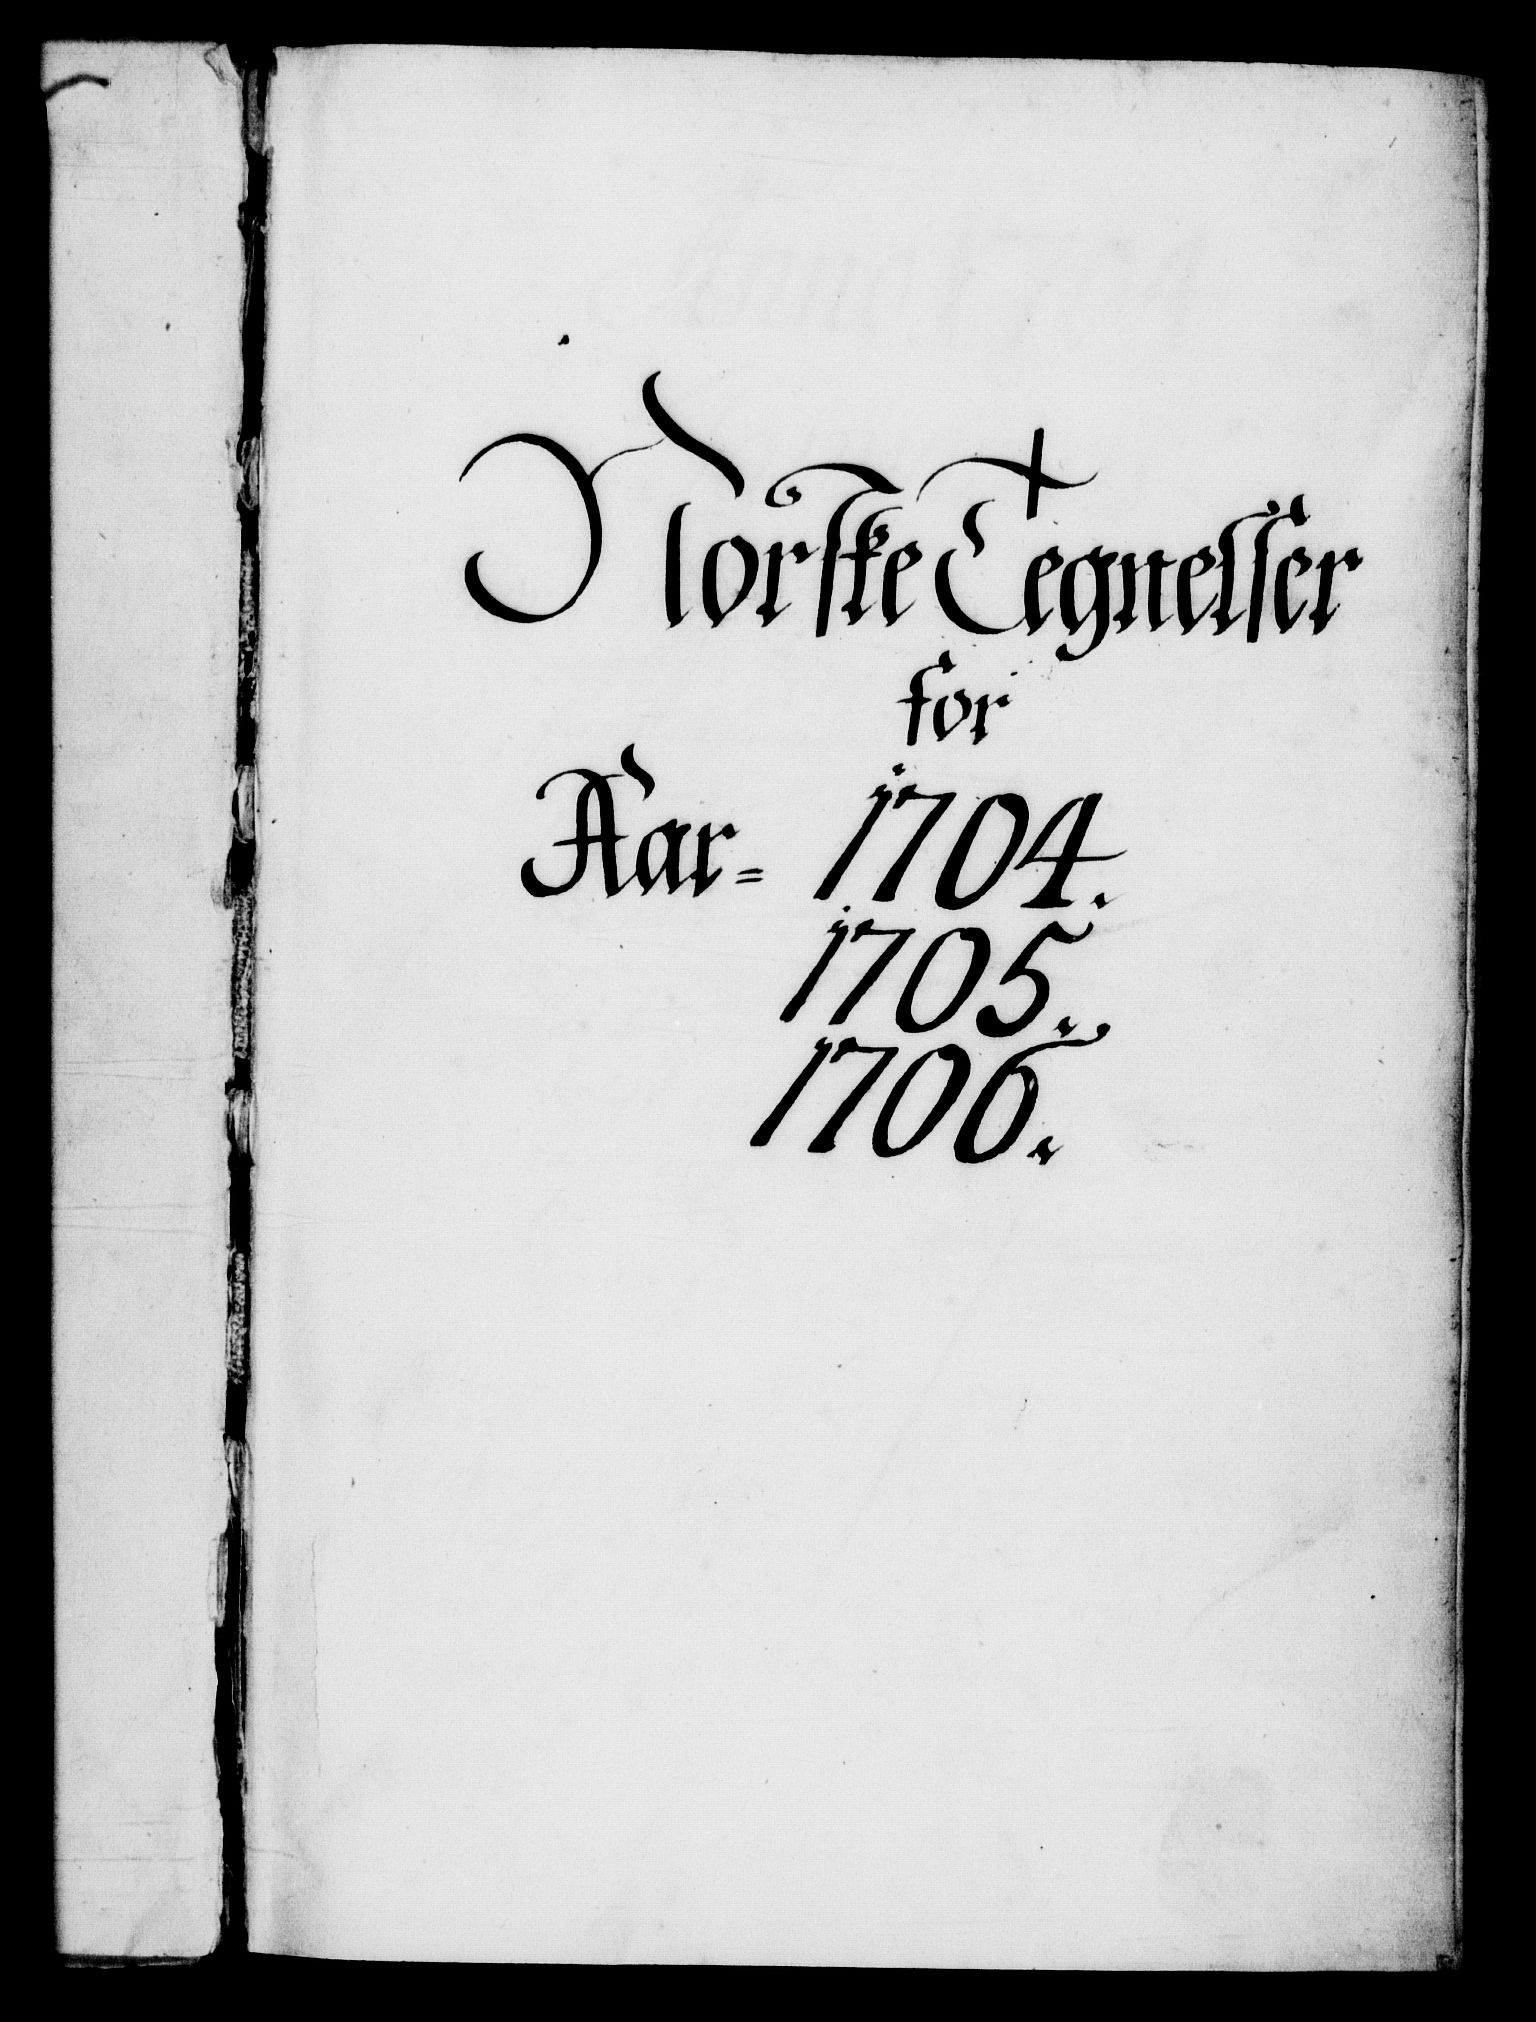 Norske Tegnelser
for
Aar= 1704.
1705.
1706.